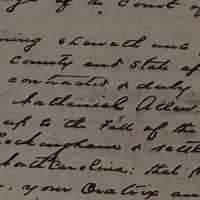 of the Court of
ning sheweth unto
County and State of
contracted & duly
Nathaniel Allen,
up to the Fall of the
Rockingham & settl
North Carolina: that
your Oratrix an